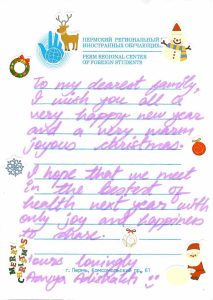 ПЕРМСКИЙ РЕГИОНАЛЬНЫЙ
ИНОСТРАННЫХ ОБУЧАЮЩИХ
PERM REGIONAL CENTER
OF FOREIGN STUDENTS
To my dearest family,
I wish you all a
very happy new year
and a very warm
joyous christmas.
I hope that we meet
in the bestest of
health next year with
only joy and happiness
to share.
Yours lovingly
MERRY CHRISTMAS
г. Пермь, Комсомольский пр., 61